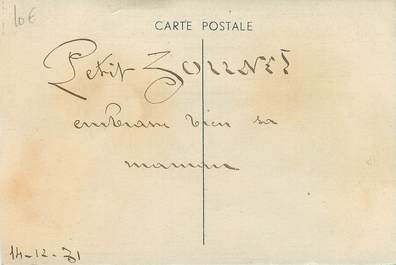 10€
CARTE POSTALE
Petit
embrasse bien sa
maman
14-12-31